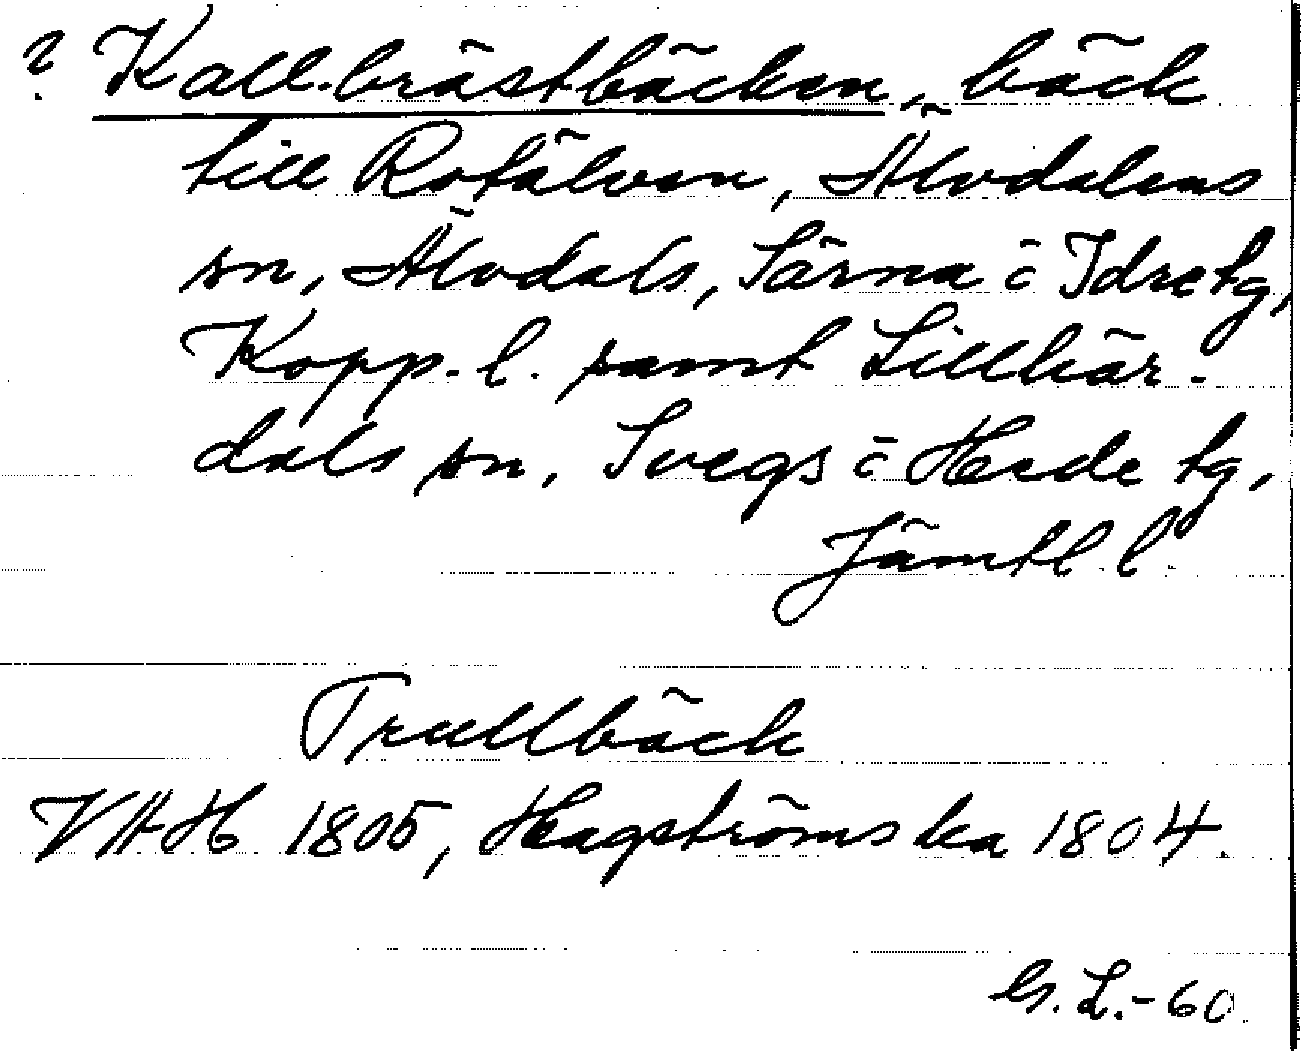 ? Kallbrästbäcken, bäck
till Rotälven, Älvdalens
sn, Älvdals, Särna o Idre tg,
Kopp. l. samt Lillhär-
dals sn, Svegs o Hede tg,
Jämtl. l.
Trullbäck
VAH 1805, Hagströms ka 1804.
G. L. - 60.